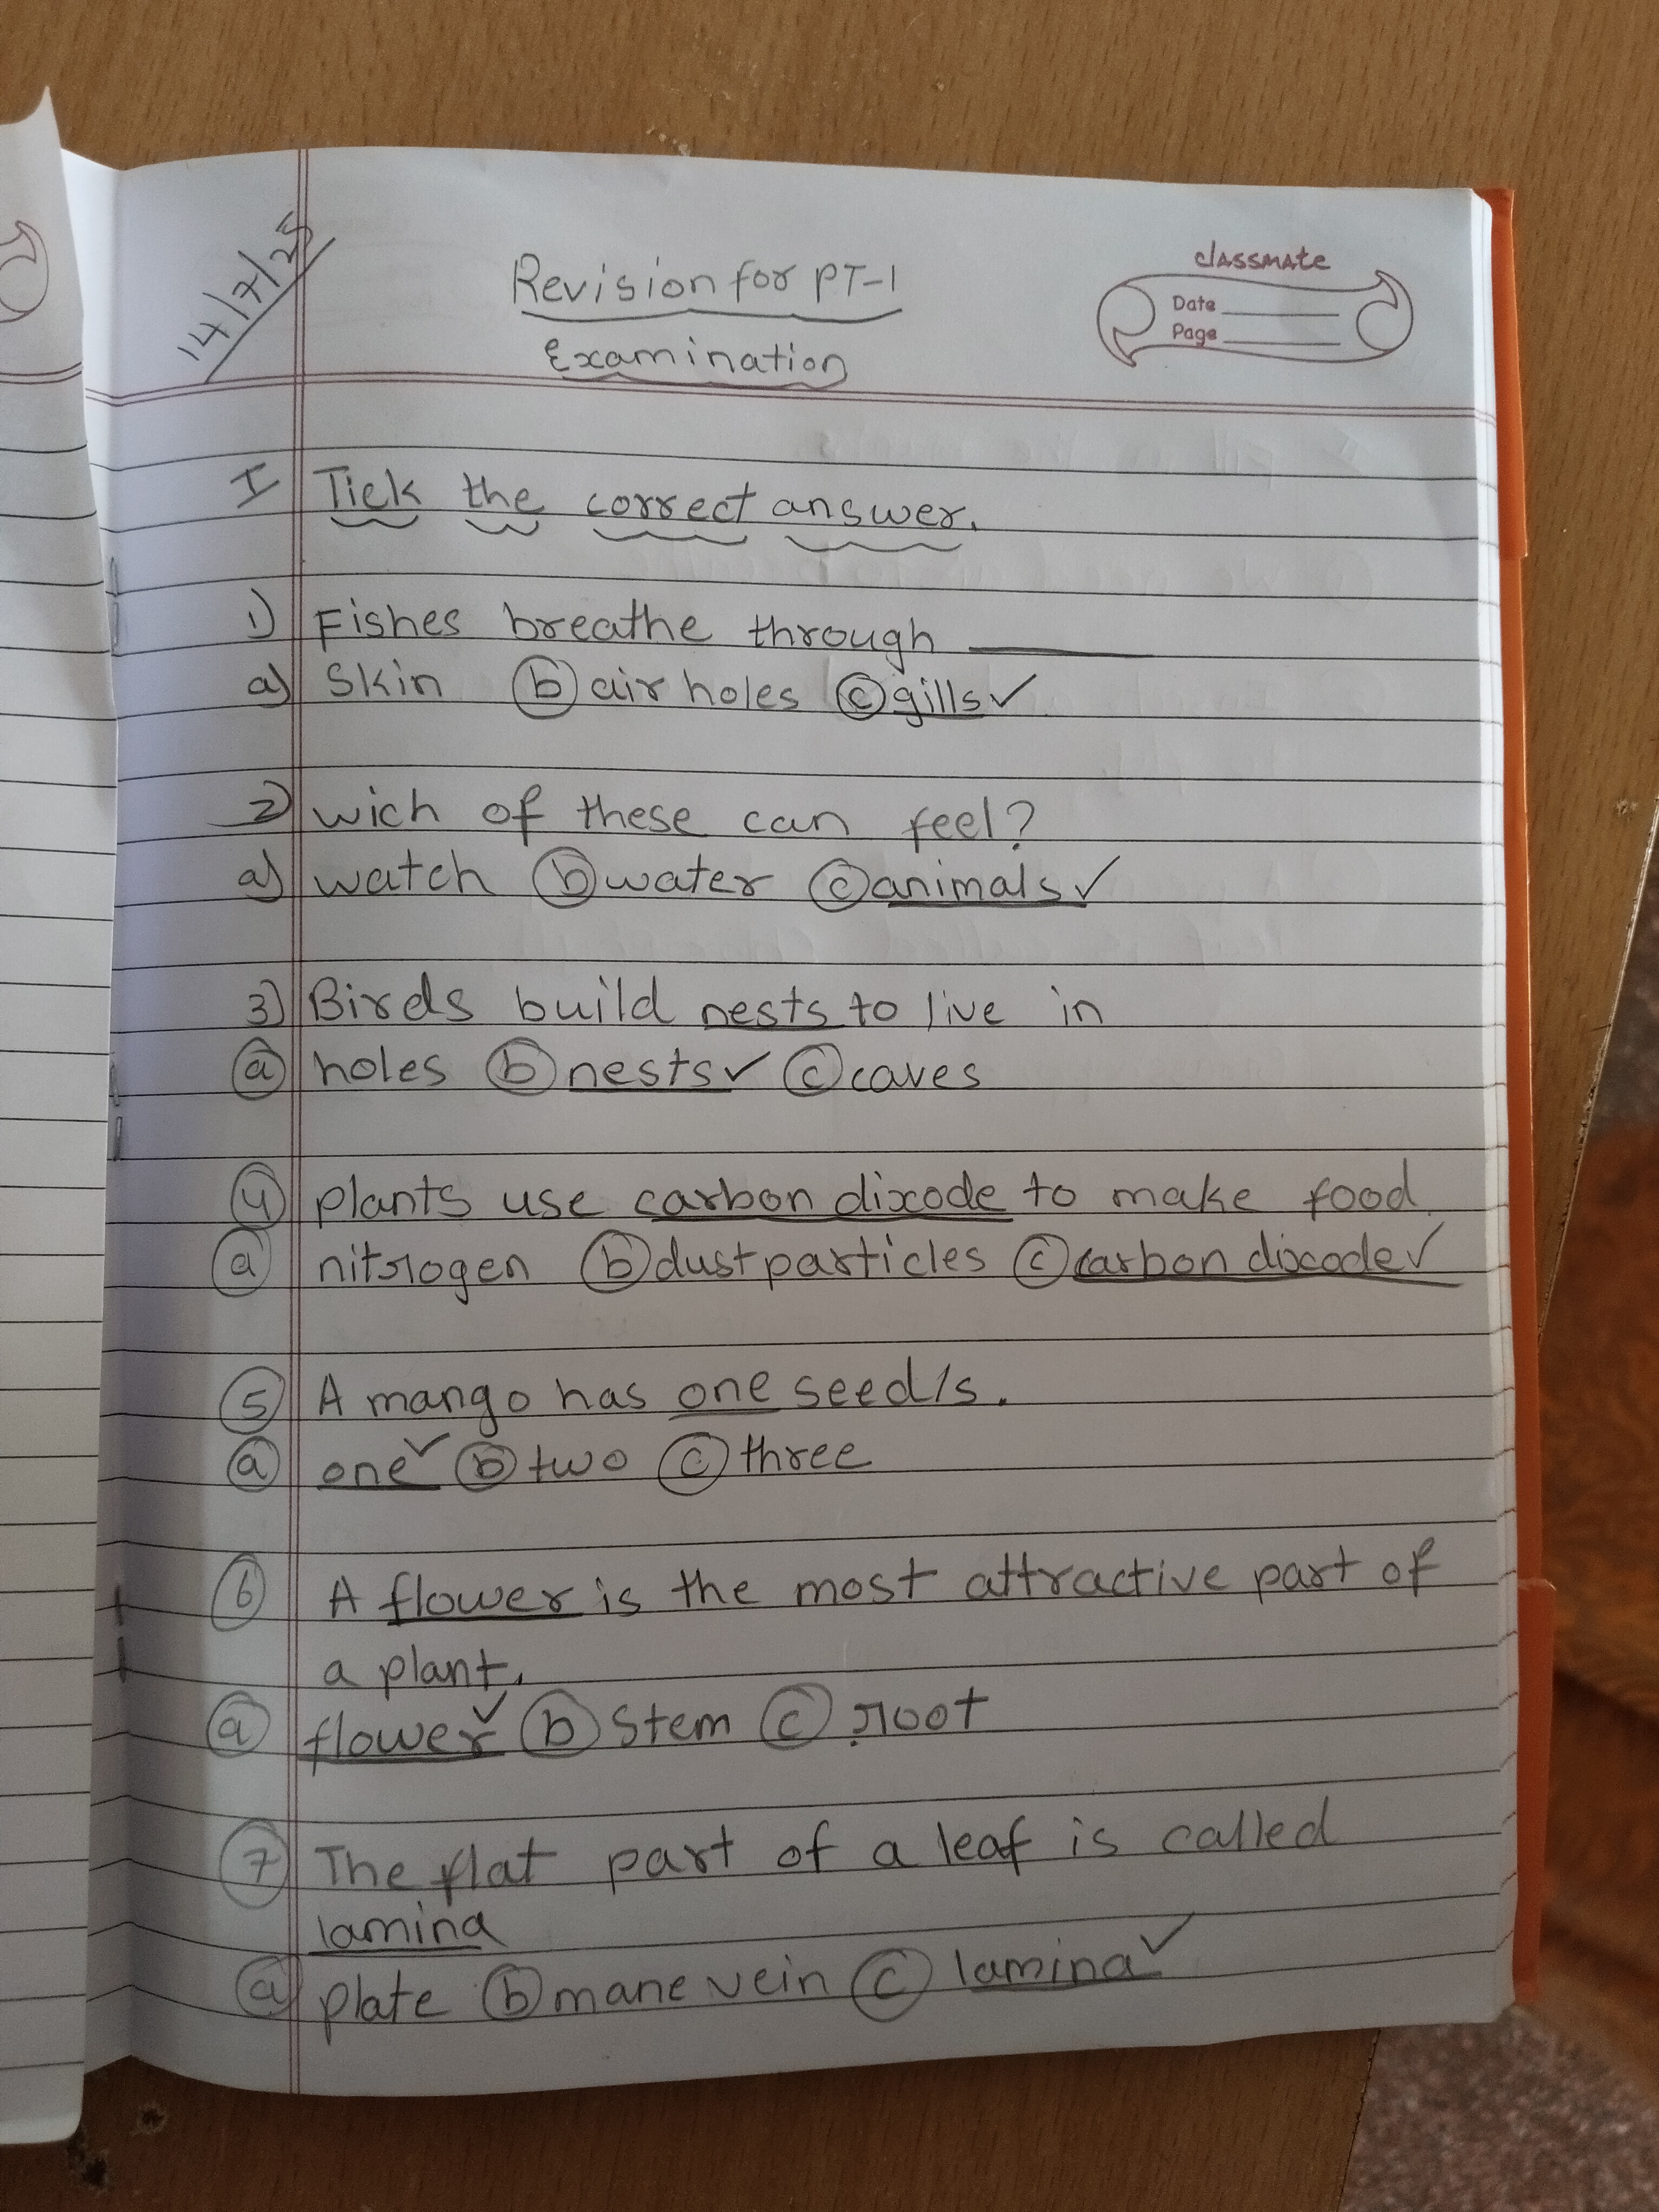 14/7/25
Revision for PT-1
Examination
classmate
Date
Page
I Tick the correct answer.
1) Fishes breathe through ______
a) Skin (b) air holes (c) gills ✓
2) wich of these can feel?
a) watch (b) water (c) animals ✓
3) Birds build nests to live in
(a) holes (b) nests ✓ (c) caves
(4) plants use carbon dixode to make food
(a) nitrogen (b) dust particles (c) carbon dixcode ✓
(5) A mango has one seed/s.
(a) one ✓ (b) two (c) three
(6) A flower is the most attractive part of
a plant.
(a) flower ✓ (b) Stem (c) root
(7) The flat part of a leaf is called
lamina
(a) plate (b) mane vein (c) lamina ✓